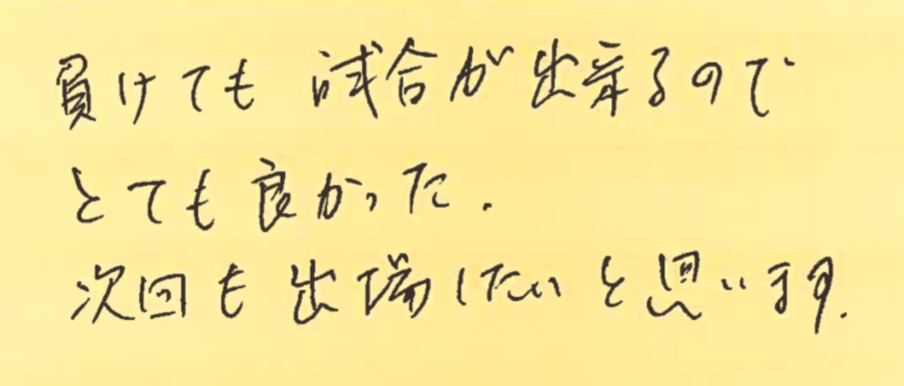 負けても試合が出来るので
とても良かった.
次回も出場したいと思います.